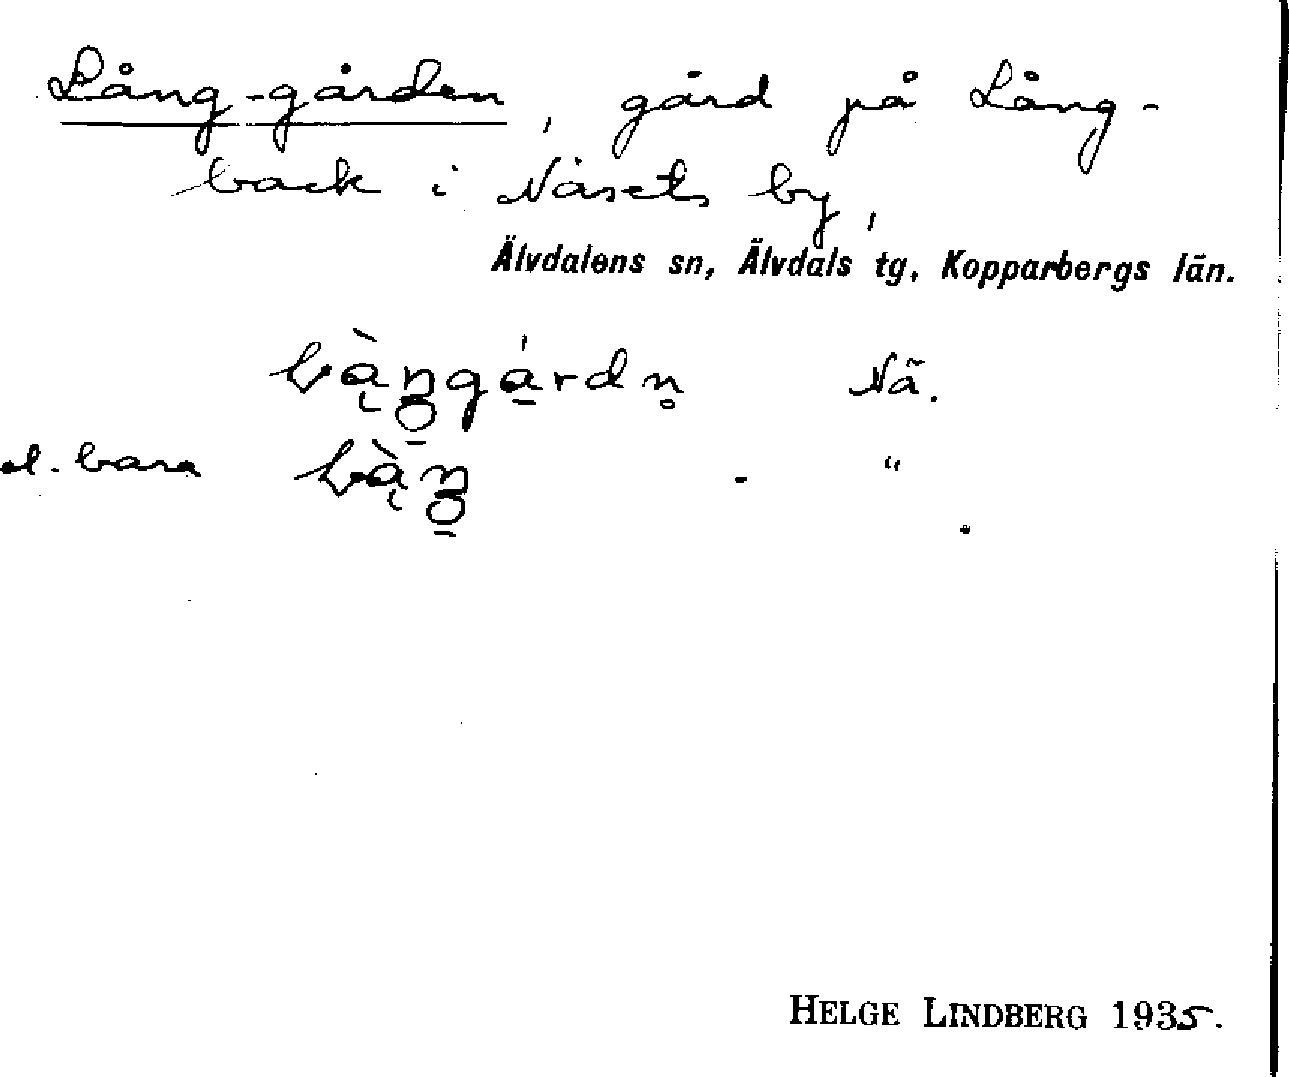 Lång-gården, gård på Lång-
back i Näsets by,
Älvdalens sn, Älvdals tg, Kopparbergs län.
Nä.
el. bara - "
HELGE LINDBERG 1935.